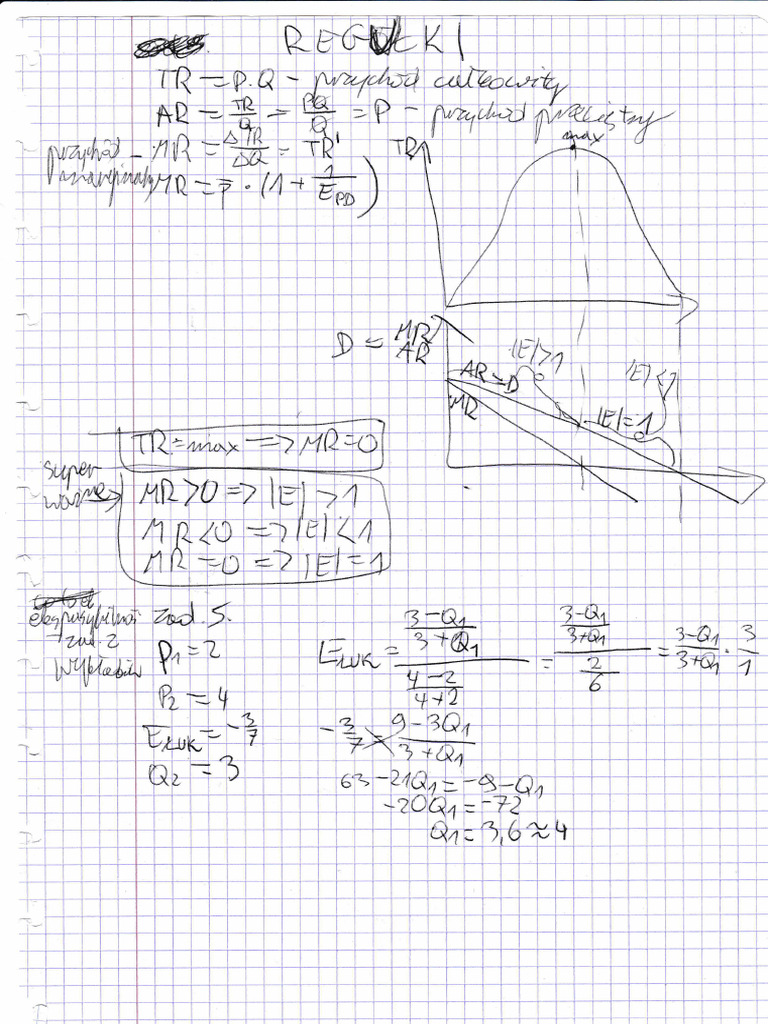 REGUŁKI
TR = P.Q - przychód całkowity
AR = TR/Q = PQ/Q = P - przychód przeciętny
przychód marginalny - MR = ΔTR/ΔQ = TR'
MR = P · (1 + 1/E_PD)
TR
max
D = AR
MR
AR = D
MR
|E|>1
|E|<1
|E|=1
TR = max => MR=0
super ważne →
MR>0 => |E|>1
MR<0 => |E|<1
MR=0 => |E|=1
zad. 2
zad. 5.
P₁=2
P₂=4
E_ŁUK = -3/7
Q₂ = 3
E_ŁUK = ((3-Q₁)/(3+Q₁))/((4-2)/(4+2)) = ((3-Q₁)/(3+Q₁))/(2/6) = (3-Q₁)/(3+Q₁) · 3/1
-3/7 = (9-3Q₁)/(3+Q₁)
63-21Q₁=-9-Q₁
-20Q₁=-72
Q₁=3,6≈4